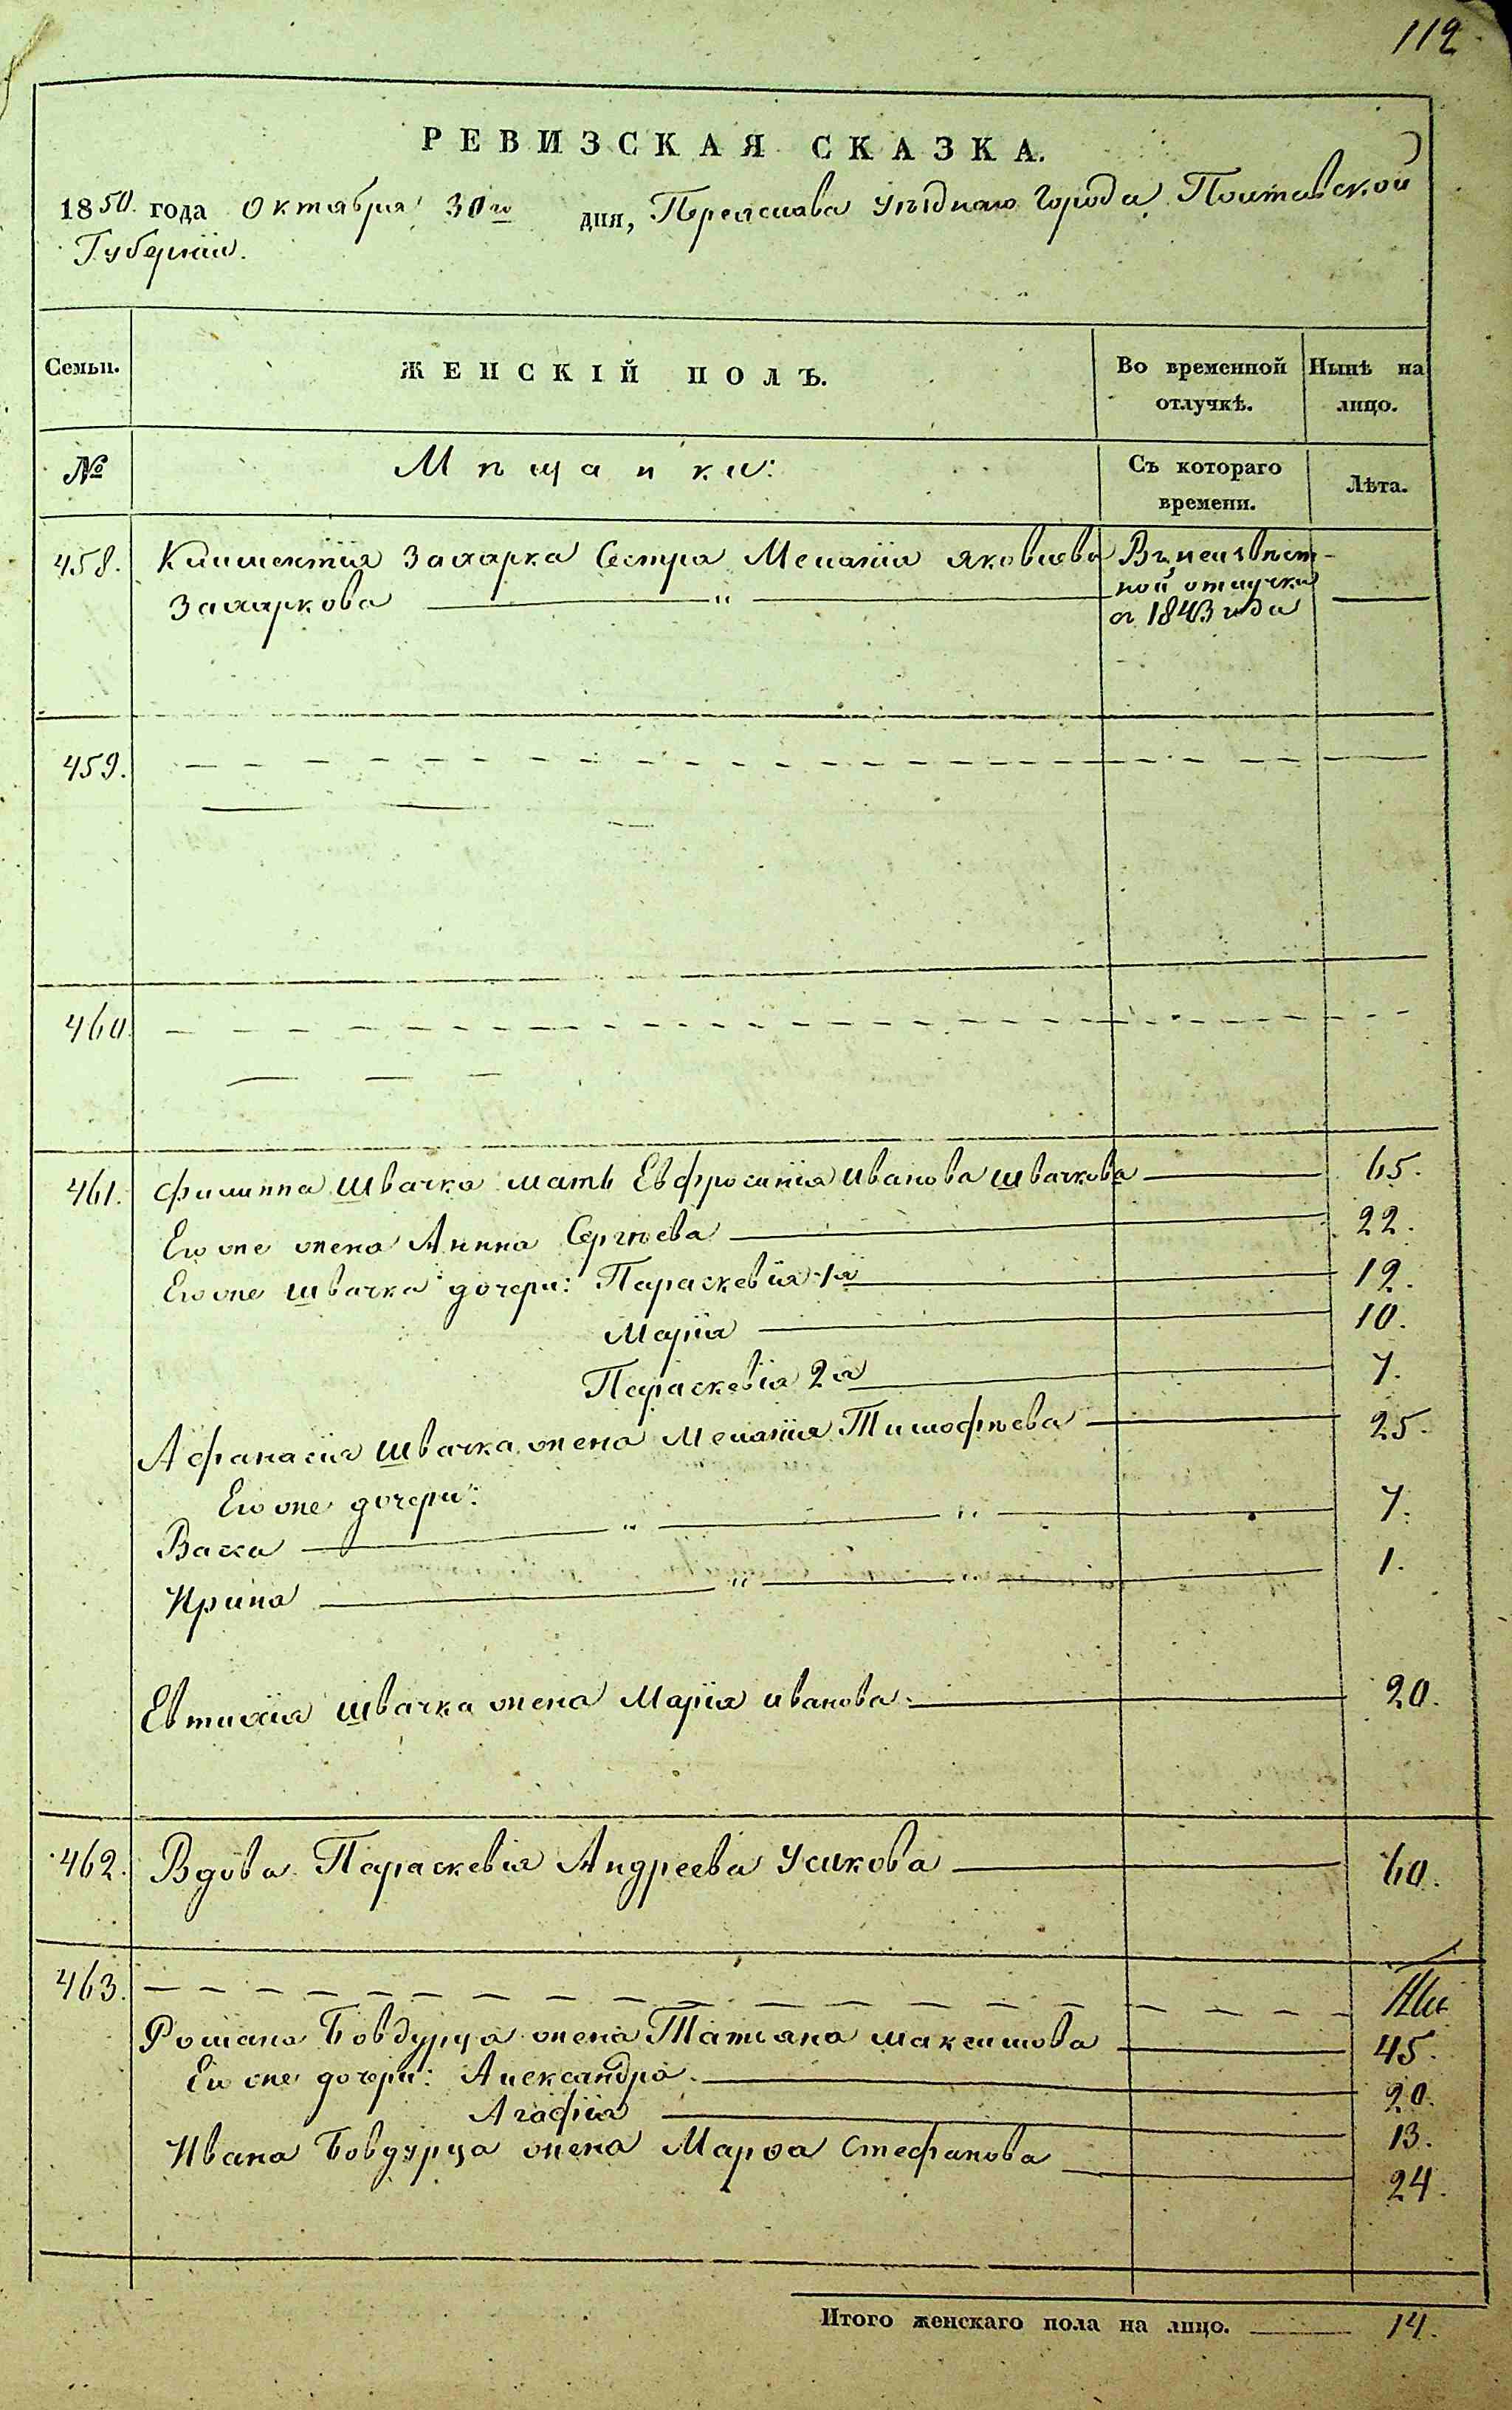 112
РЕВИЗСКАЯ СКАЗКА.
1850. года Октября 30го дня, Переяслава Уѣзднаго Города Полтавской
Губерніи.
Семьи. ЖЕНСКІЙ ПОЛЪ. Во временной отлучкѣ. Нынѣ на лицо.
№ Мѣщанки: Съ котораго времени. Лѣта.
458. Климентія Захарка Сестра Меланія Яковлева Въ неизвѣст-
Захаркова ной отлучки
съ 1843 года
459.
460.
461. Филиппа Швачка мать Евфросинія Иванова Швачкова 65.
Его же жена Анна Сергѣева 22.
Его же Швачка дочери: Параскевія 1я 12.
Марія 10.
Параскевія 2я 7.
Афанасія Швачка жена Меланія Тимофѣева 25.
Его же дочери:
Васса 7.
Ирина 1.
Евтихія Швачка жена Марія Иванова 20.
462. Вдова Параскевія Андреева Усикова 60.
463.
Романа Бовдурца жена Татіяна Максимова 45.
Его же дочери: Александра 20.
Агафія 13.
Ивана Бовдурца жена Марѳа Стефанова 24.
Итого женскаго пола на лицо. 14.